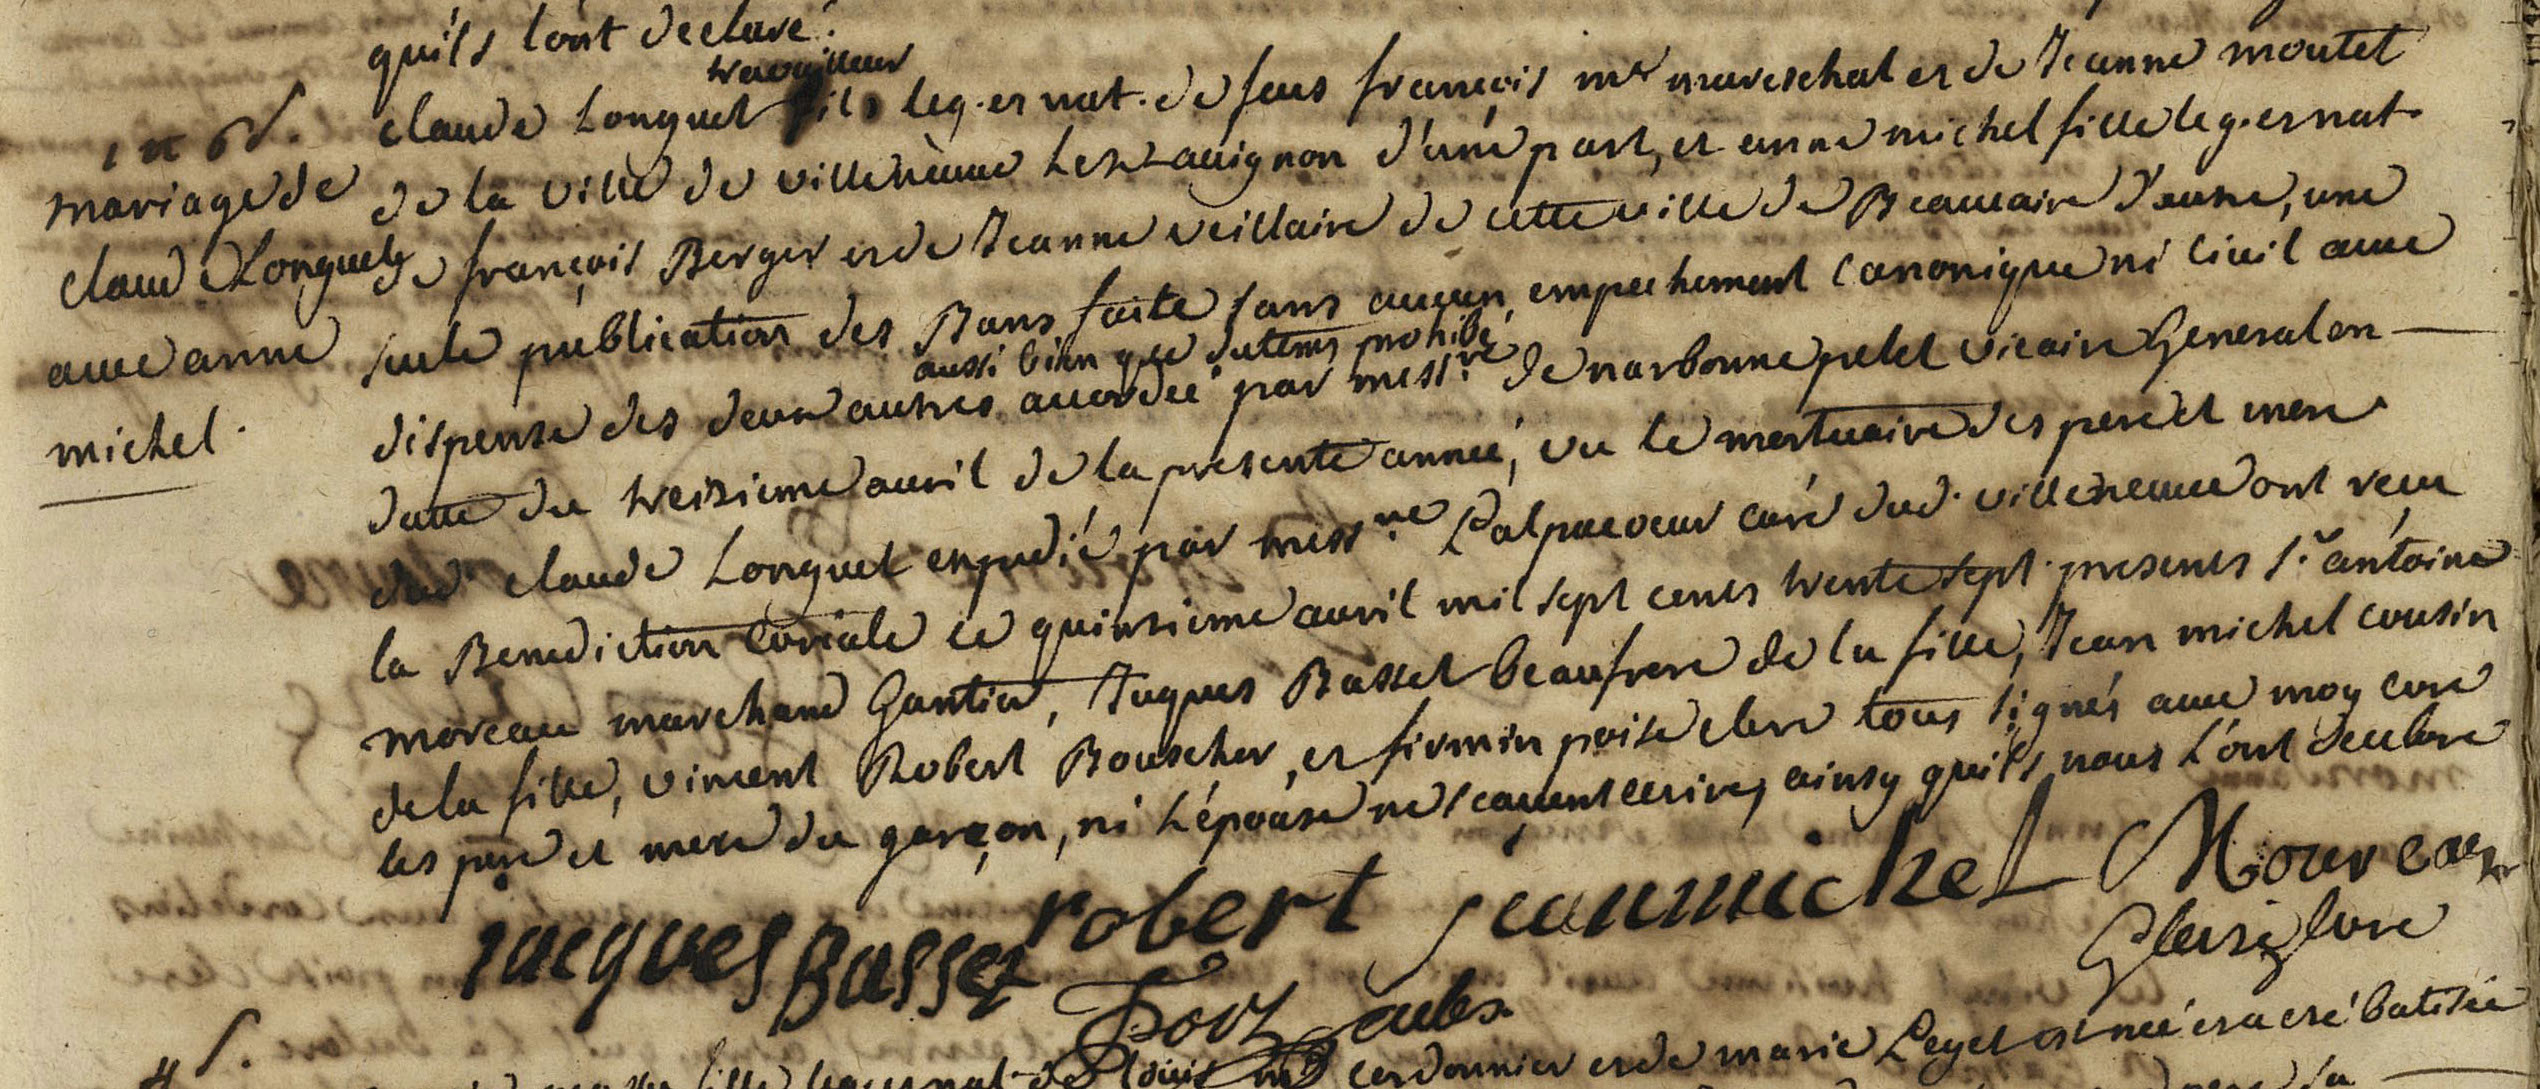 quils l'ont declaré.
travailleur
claude Longuet fils leg. et nat. de feus françois mr mareschal et de Jeanne moutet
mariage de
claude Longuet
avec anne
michel.
de la ville de villeneuve Lez avignon d'une part, et anne michel fille leg. et nat.
de françois Berger et de Jeanne veillaire de cette ville de Beaucaire d'autre, une
seule publication des Bans faite sans aucun empechement canonique ni civil avec
aussi bien que du tems prohibé
dispense des deux autres accordée par messire de narbonne pelet vicaire General en
date du treizieme avril de la presente année, vu le mortuaire des pere et mere
dud. claude Longuet expedié par messre curé dud. villeneuve ont reçu
la Benediction Curiale ce quinzieme avril mil sept cents trente sept presents sr. antoine
moreau marchand Gantier, Jaques Basset beaufrere de la fille, Jean michel cousin
de la fille, vincent Robert Boucher, et firmin poise clerc tous signés avec moy curé
les pere et mere du garçon, ni L'épouse ne scavent ecrire, ainsy quils nous L'ont declaré
jacques Basset robert jean michel Moureau
curé
louis cordonnier et de marie Leget est née et a eté batisée